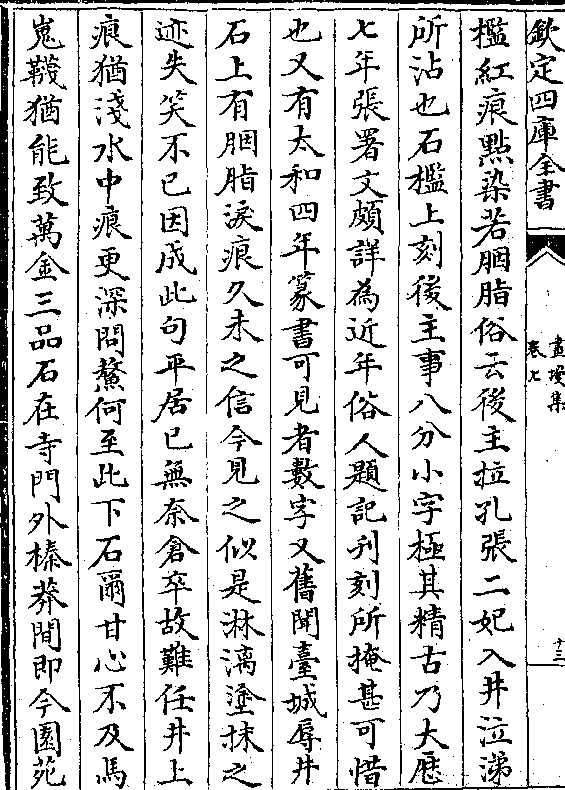 欽定四庫全書
畫墁集
卷七
十三
檻紅痕點染若胭脂俗云後主拉孔張二妃入井泣涕
所沾也石檻上刻後主事八分小字極其精古乃大厯
七年張署文頗詳為近年俗人題記刋刻所掩甚可惜
也又有太和四年篆書可見者數字又舊聞臺城辱井
石上有胭脂淚痕久未之信今見之似是淋漓塗抹之
迹失笑不已因成此句平居已無奈倉卒故難任井上
痕猶淺水中痕更深問鰲何至此下石爾甘心不及馬
嵬韈猶能致萬金三品石在寺門外榛莽間即今園苑